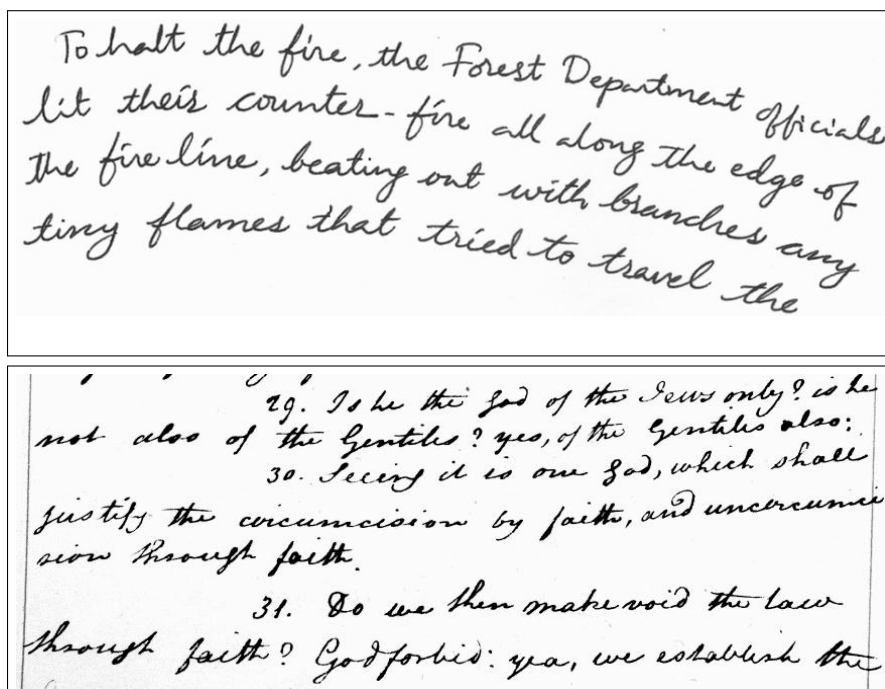 To halt the fire, the Forest Department officials
lit their counter-fire all along the edge of
the fire line, beating out with branches any
tiny flames that tried to travel the
29. Is he the God of the Jews only? is he
not also of the Gentiles? yes, of the Gentiles also:
30. Seeing it is one God, which shall
justify the circumcision by faith, and uncircumci
sion through faith.
31. Do we then make void the law
through faith? God forbid: yea, we establish the